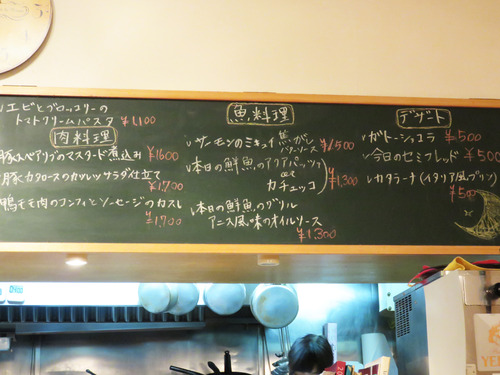 エビとブロッコリーの
トマトクリームパスタ ¥1,100
肉料理
豚スペアリブのマスタード煮込み ¥1600
豚カタロースのカツレツサラダ仕立て
¥1,700
鴨モモ肉のコンフィとソーセージのカスレ
¥1,700
魚料理
サーモンのミキュイ 焦がし
バターソース ¥1,500
本日の鮮魚のアクアパッツァ
or
カチュッコ ¥1,300
本日の鮮魚のグリル
アニス風味のオイルソース
¥1,300
デザート
ガトーショコラ ¥500
今日のセミフレッド ¥500
カタラーナ(イタリア風プリン)
¥500